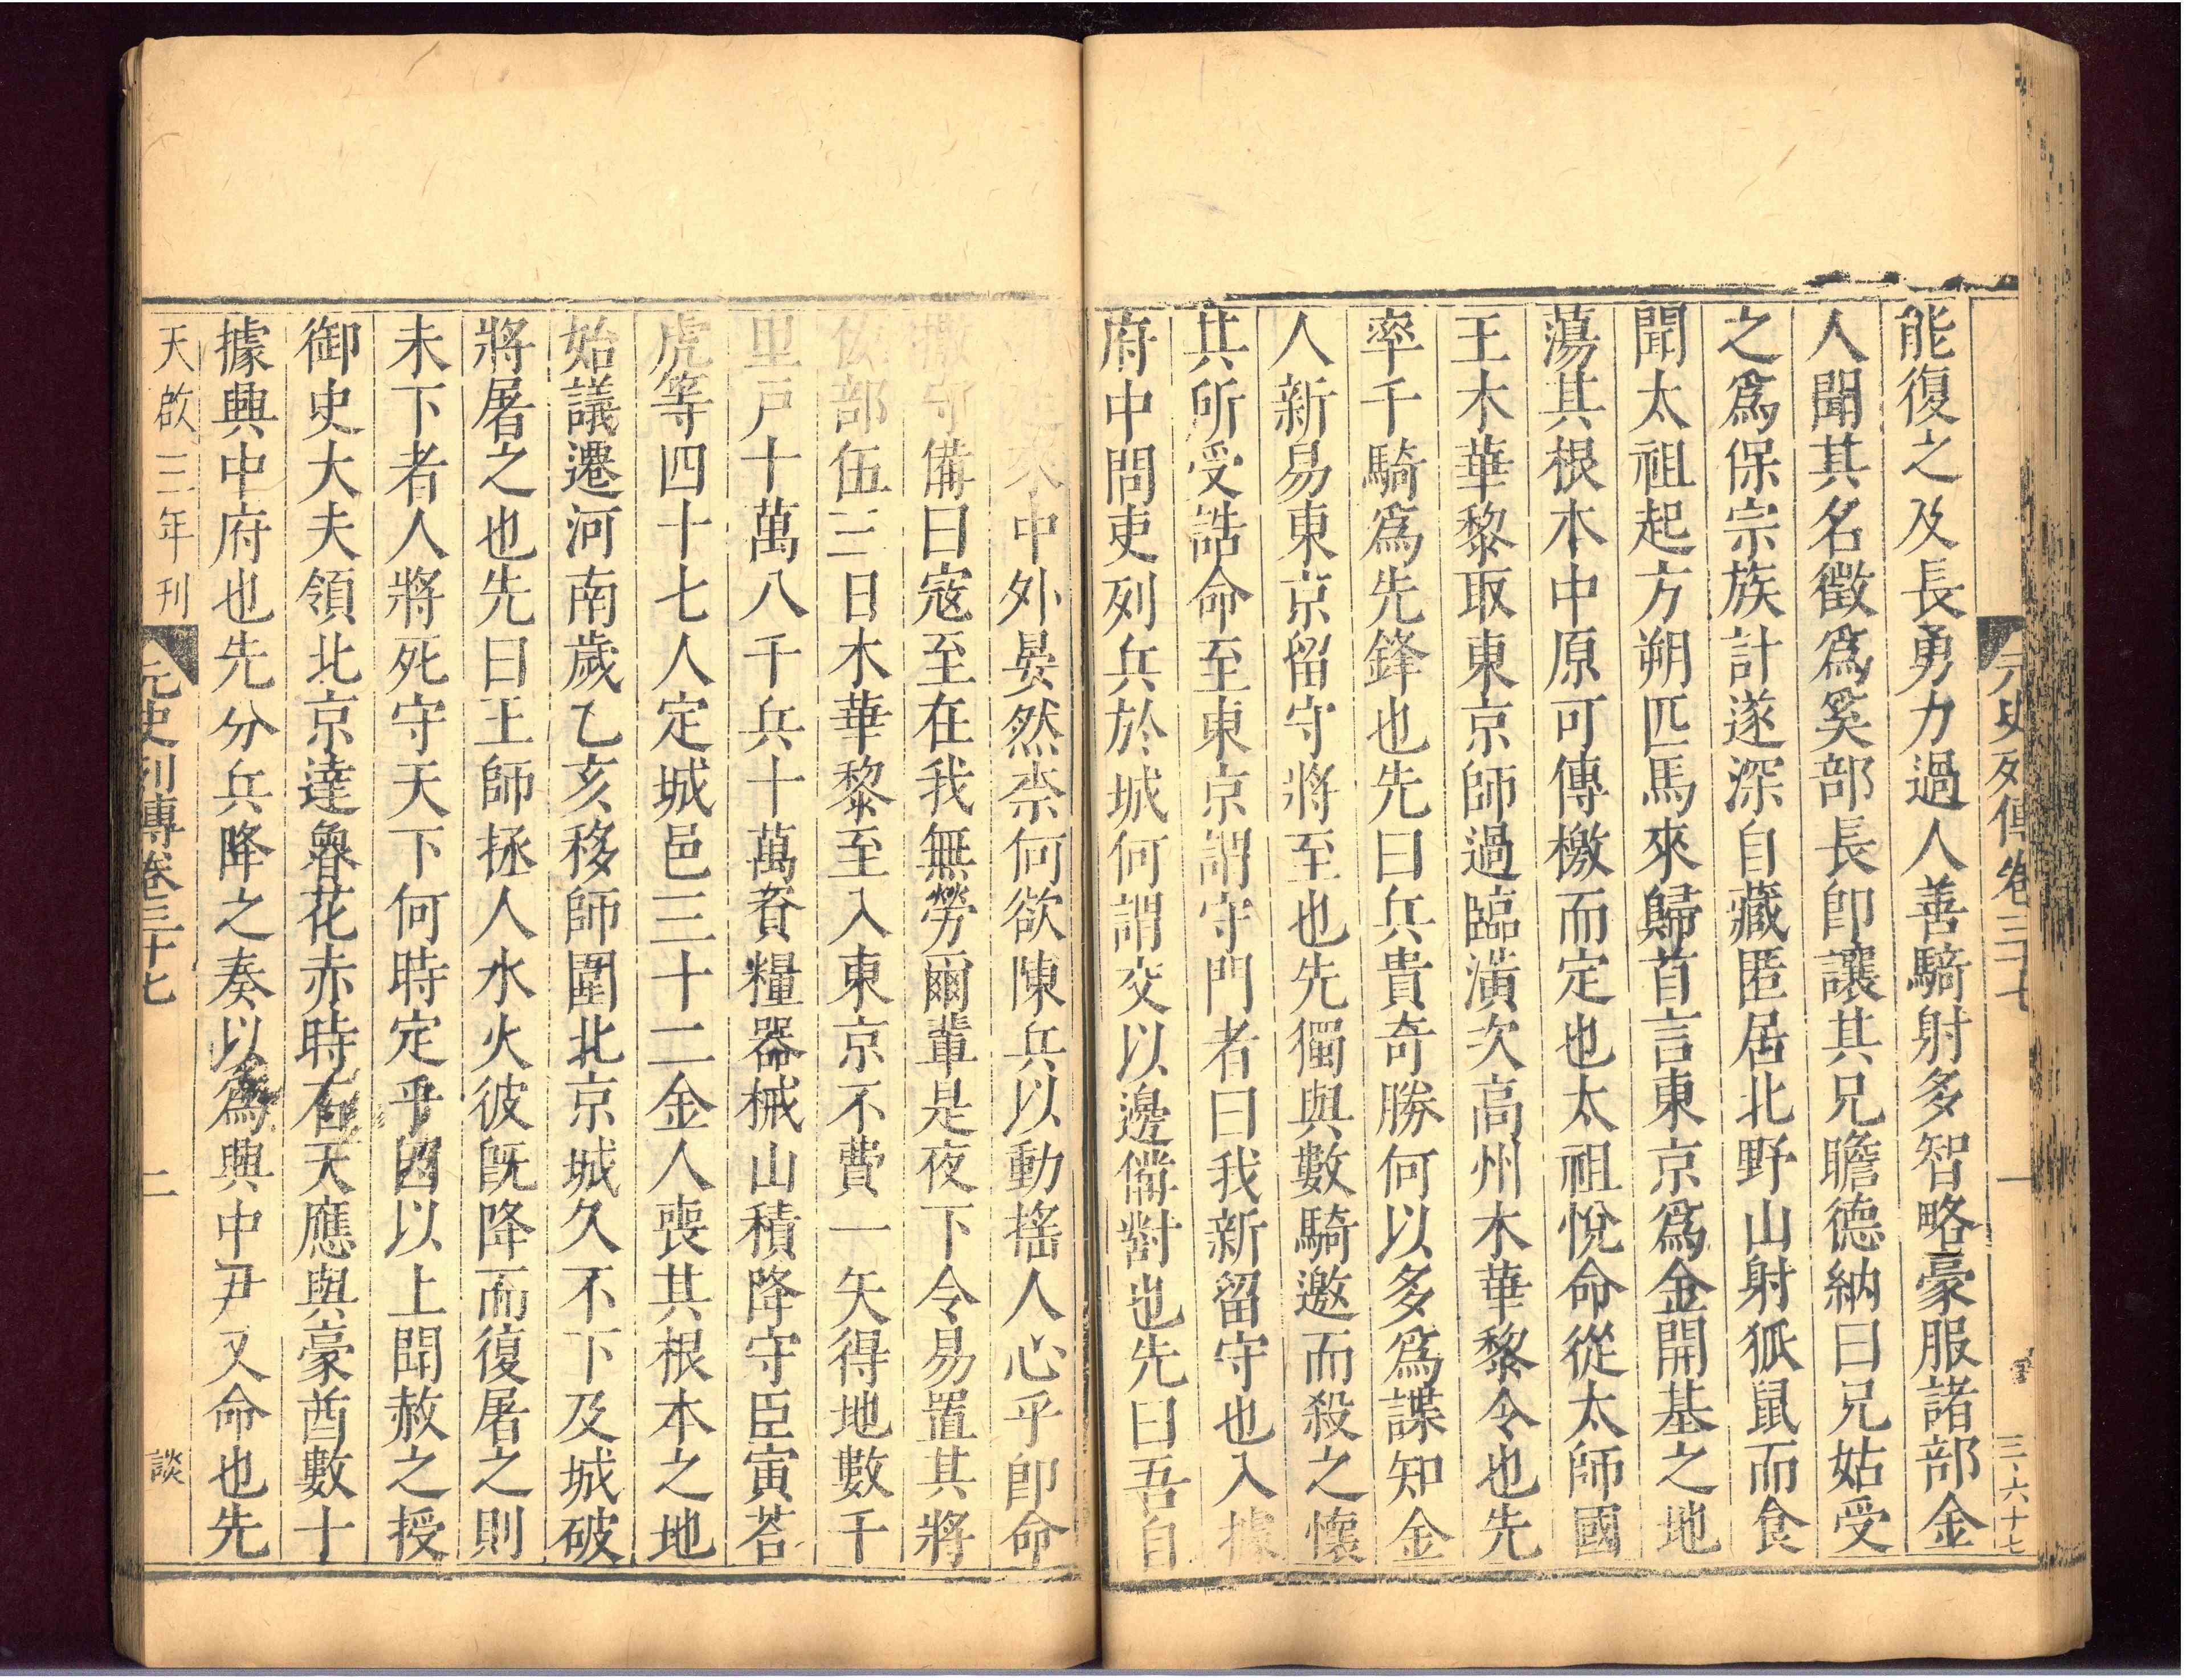 元史列傳卷三十七 一 三六十七
能復之及長勇力過人善騎射多智略豪服諸部金
人聞其名徵爲奚部長卽讓其兄瞻德納曰兄姑受
之爲保宗族計遂深自藏匿居北野山射狐鼠而食
聞太祖起方朔匹馬來歸首言東京爲金開基之地
蕩其根本中原可傳檄而定也太祖悅命從太師國
王木華黎取東京師過臨潢次高州木華黎令也先
率千騎爲先鋒也先曰兵貴奇勝何以多爲諜知金
人新易東京留守將至也先獨與數騎邀而殺之懷
其所受誥命至東京謂守門者曰我新留守也入據
府中問吏列兵於城何謂吏以邊備對也先曰吾自
來中外晏然柰何欲陳兵以動搖人心乎卽命
守備曰寇至在我無勞爾輩是夜下令易置其將
佐部伍三日木華黎至入東京不費一矢得地數千
里戶十萬八千兵十萬資糧器械山積降守臣寅荅
虎等四十七人定城邑三十二金人喪其根本之地
始議遷河南歲乙亥移師圍北京城久不下及城破
將屠之也先曰王師拯人水火彼旣降而復屠之則
未下者人將死守天下何時定乎因以上聞赦之授
御史大夫領北京達魯花赤時石天應與豪酋數十
據興中府也先分兵降之奏以爲興中尹又命也先
天啟三年刊 元史列傳卷三十七 二 談